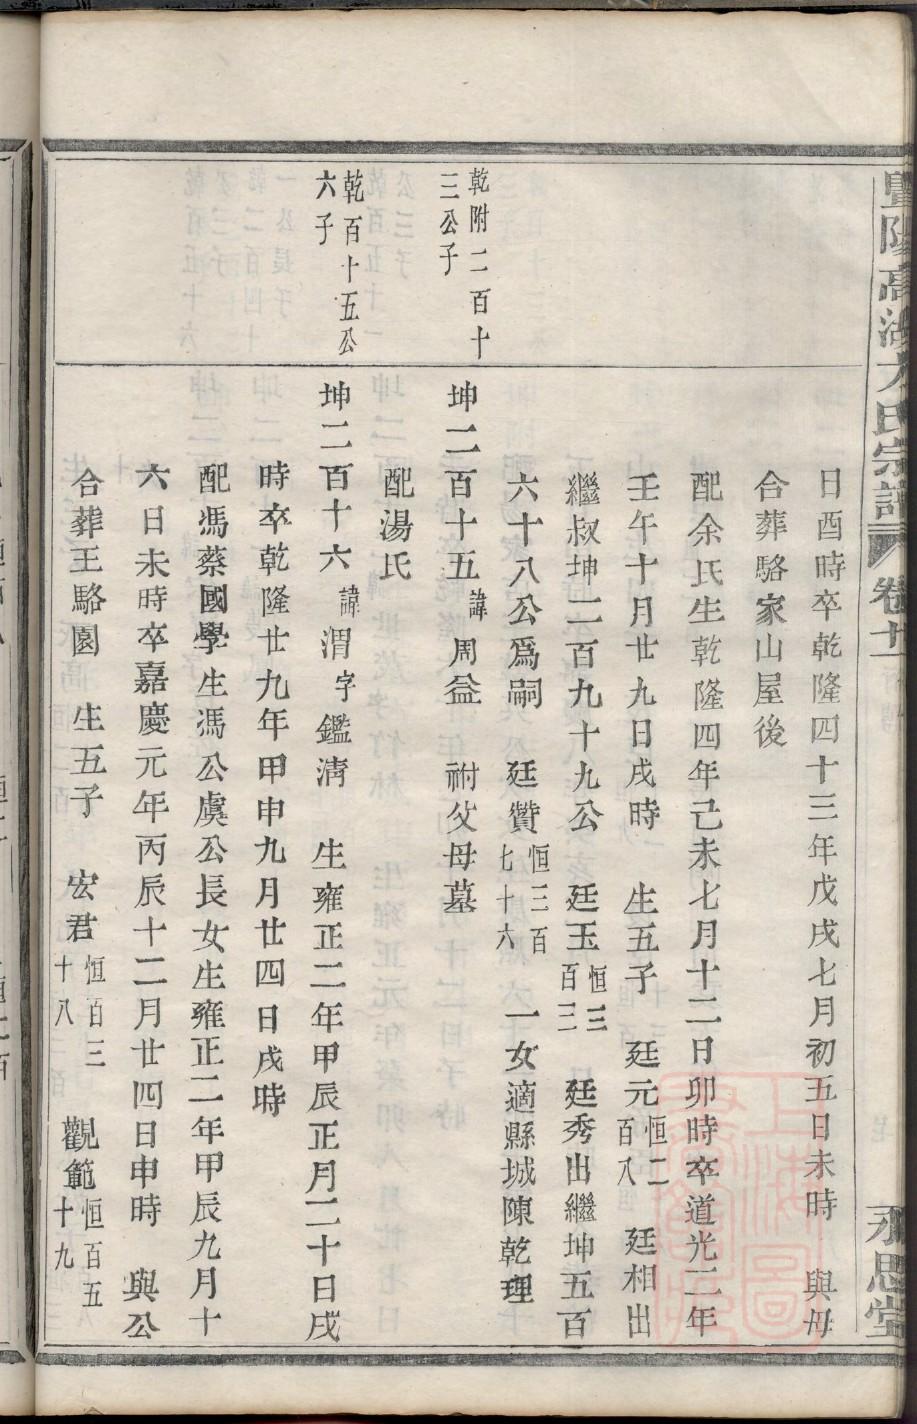 暨陽高湖方氏宗譜 卷十 永思堂
日酉時卒乾隆四十三年戊戌七月初五日未時 與母
合葬駱家山屋後
配余氏生乾隆四年己未七月十二日卯時卒道光二年
壬午十月廿九日戌時 生五子 廷元恒二百八 廷相出
繼叔坤二百九十九公 廷玉恒三百三 廷秀出繼坤五百
六十八公爲嗣 廷贊恒三百七十六 一女適縣城陳乾理
乾附二百十三公子
坤二百十五諱周益 祔父母墓
配湯氏
乾百十五公六子
坤二百十六諱渭字鑑淸 生雍正二年甲辰正月二十日戌
時卒乾隆廿九年甲申九月廿四日戌時
配馮蔡國學生馮公虞公長女生雍正二年甲辰九月十
六日未時卒嘉慶元年丙辰十二月廿四日申時 與公
合葬王駱園 生五子 宏君恒百三十八 觀範恒百五十九